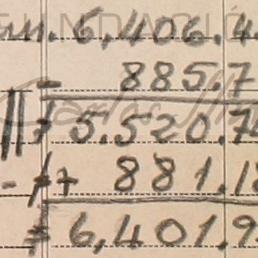 m. 6,406.4
- 885.7
+ 5.520.7
- + 881.1
= 6,401,9